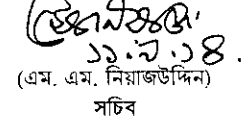 ১১.৩.১৪
(এম. এম. নিয়াজউদ্দিন)
সচিব